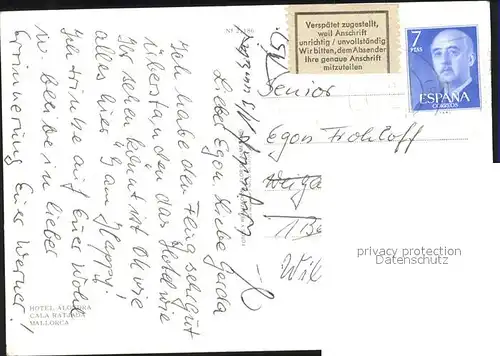 Verspätet zugestellt,
weil Anschrift
unrichtig / unvollständig
Wir bitten, dem Absender
Ihre genaue Anschrift
mitzuteilen
7
PTAS
ESPAÑA
CORREOS
Senior
Egon Frohloff
Lieber Egon, liebe Gerda
Ich habe den Flug sehr gut
überstanden das Hotel wie
Ihr sehen könnt ist OK wie
alles hier "I am Happy"
Ich trinke auf Euer Wohl
u. bleibe in lieber
Erinnerung Euer Werner!
HOTEL
CALA RATJADA
MALLORCA
privacy protection
Datenschutz